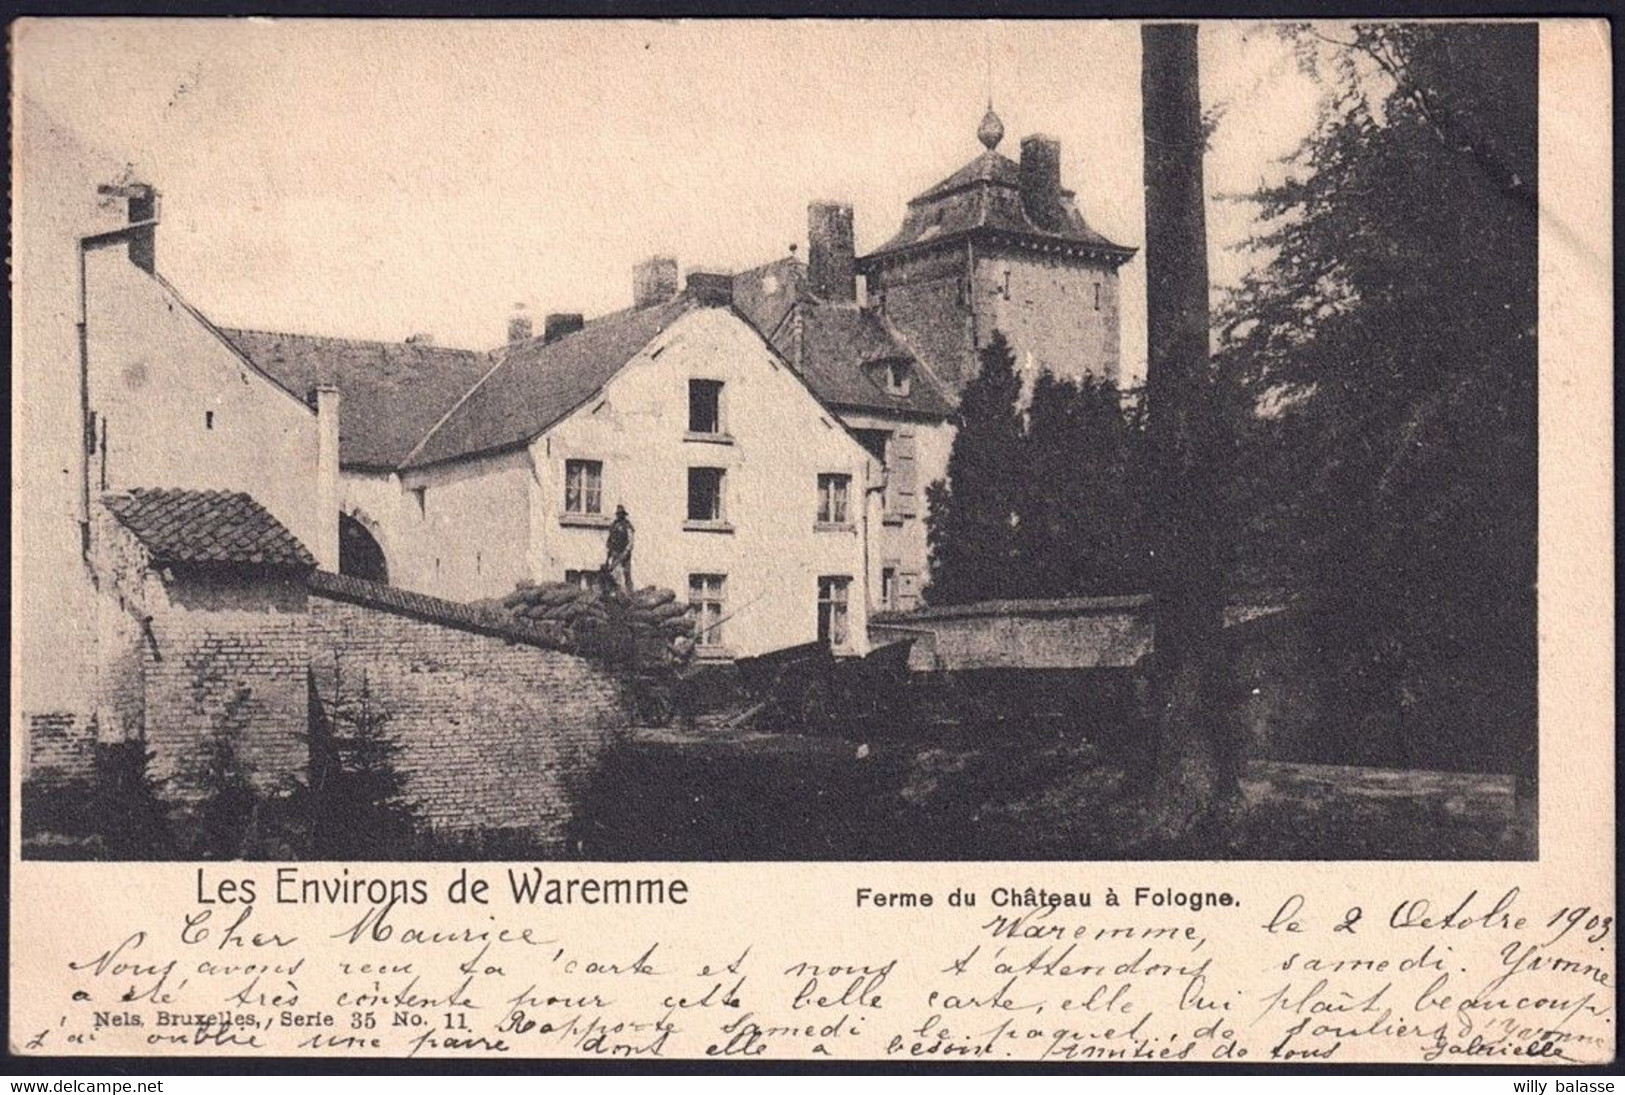 Les Environs de Waremme
Ferme du Château à Fologne.
Cher Maurice
Waremme, le 2 Octobre 1903
Nous avons reçu ta carte et nous t'attendons samedi. Yvonne
a été très contente pour cette belle carte, elle lui plaît beaucoup.
Nels, Bruxelles, Serie 35 No. 11.
Rapporte samedi le paquet de souliers d'Yvonne
j'ai oublié une paire dont elle a besoin. Amitiés de tous Gabrielle
delcampe.net
willy balasse